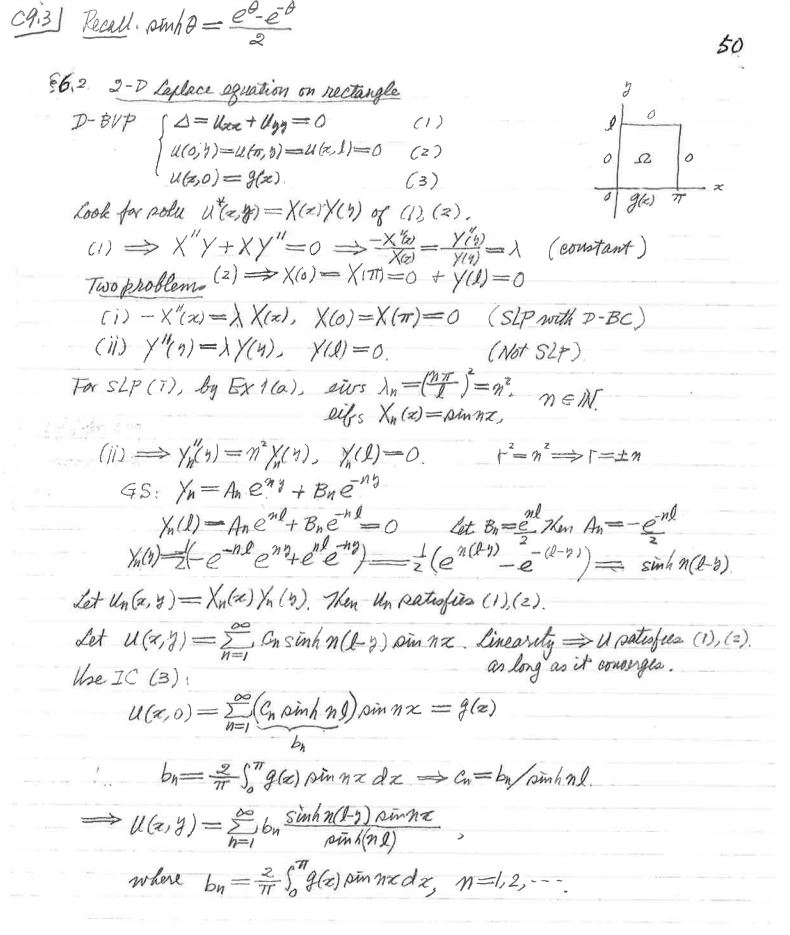 C9.3] Recall. sinhθ = (e^θ - e^{-θ})/2
50
§6.2 2-D Laplace equation on rectangle
D-BVP { Δ = u_xx + u_yy = 0 (1)
u(0,y) = u(π,y) = u(x,l) = 0 (2)
u(x,0) = g(x). (3)
y
l 0
0 Ω 0
0 g(x) π x
Look for soln u*(x,y) = X(x)Y(y) of (1), (2).
(1) ⟹ X''Y + XY'' = 0 ⟹ -X''(x)/X(x) = Y''(y)/Y(y) = λ (constant)
Two problems (2) ⟹ X(0) = X(π) = 0 + Y(l) = 0
(i) -X''(x) = λX(x), X(0) = X(π) = 0 (SLP with D-BC)
(ii) Y''(y) = λY(y), Y(l) = 0. (Not SLP).
For SLP (i), by Ex 1(a), eivs λ_n = (nπ/l)^2 = n^2, n ∈ ℕ.
eifs X_n(x) = sin nx,
(ii) ⟹ Y_n''(y) = n^2 Y_n(y), Y_n(l) = 0. r^2 = n^2 ⟹ r = ±n
GS: Y_n = A_n e^{ny} + B_n e^{-ny}
Y_n(l) = A_n e^{nl} + B_n e^{-nl} = 0 Let B_n = e^{nl}/2 Then A_n = -e^{-nl}/2
Y_n(y) = 1/2(-e^{-nl} e^{ny} + e^{nl} e^{-ny}) = 1/2(e^{n(l-y)} - e^{-(l-y)}) = sinh n(l-y).
Let u_n(x,y) = X_n(x) Y_n(y). Then u_n satisfies (1), (2).
Let u(x,y) = Σ_{n=1}^∞ C_n sinh n(l-y) sin nx. Linearity ⟹ u satisfies (1), (2).
as long as it converges.
Use IC (3):
u(x,0) = Σ_{n=1}^∞ (C_n sinh nl) sin nx = g(x)
b_n
∴ b_n = 2/π ∫_0^π g(x) sin nx dx ⟹ C_n = b_n/sinh nl.
⟹ u(x,y) = Σ_{n=1}^∞ b_n sinh n(l-y) sin nx / sinh(nl) ,
where b_n = 2/π ∫_0^π g(x) sin nx dx, n = 1, 2, ⋯.